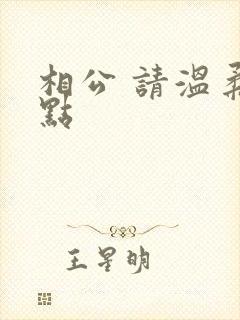 相公 請溫柔
點
王星明